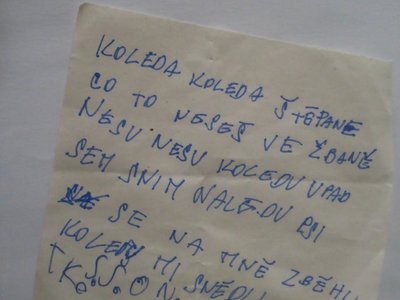 KOLEDA KOLEDA ŠTĚPANE
CO TO NESEŠ VE ŽBANĚ
NESU NESU KOLEDU UPAD
SEM SNIM NALEDU PSI
SE NA MNĚ ZBĚHLI
KOLEDU MI SNĚDLI